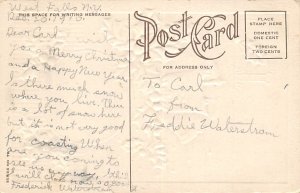 West Falls N.Y.
THIS SPACE FOR WRITING MESSAGES
Post Card
FOR ADDRESS ONLY
PLACE STAMP HERE
DOMESTIC
ONE CENT
FOREIGN
TWO CENTS
Dear Carl
a Merry Christmas
and a Happy New Year
Is there much snow
where you live. This
is a lot of snow here
but it is not very good
for coasting When
are you coming to
see us
Frederick Waterstraat
To Carl
from
Freddie Waterstraat